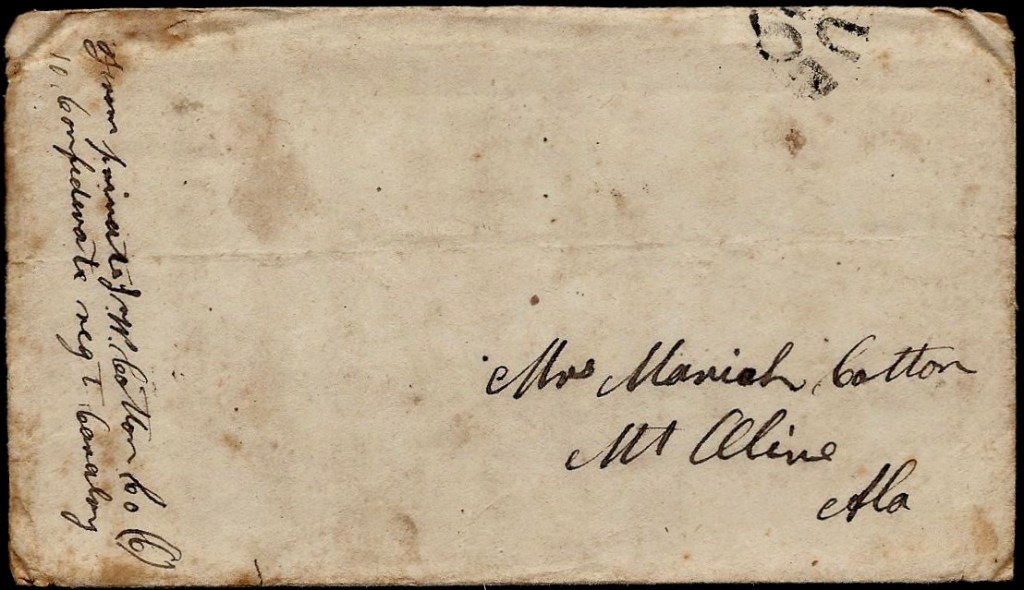 From private J.W. Cotton Co (C)
10. Confederate regt. Cavalry
DUE
10
Mrs Mariah Cotton
Mt Olive
Ala